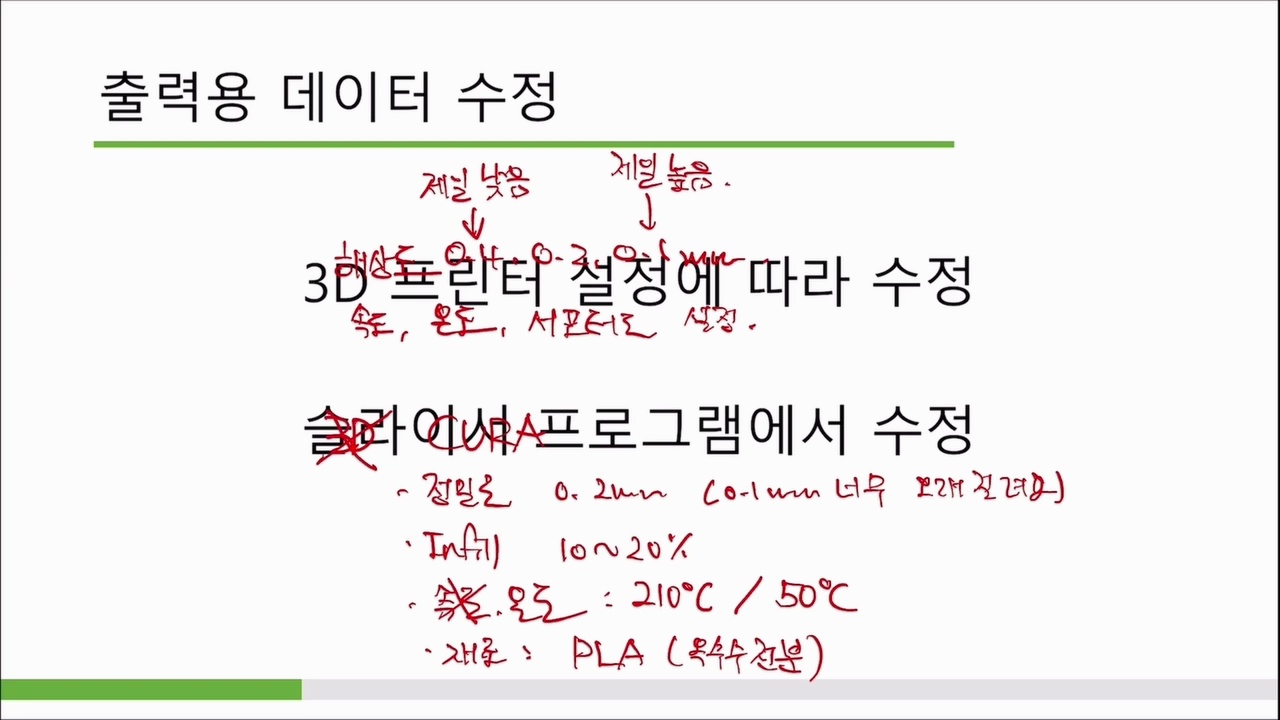 출력용 데이터 수정
제일 낮음 제일 높음.
해상도 0.4, 0.2, 0.1mm.
3D 프린터 설정에 따라 수정
속도, 온도, 서포터도 설정.
슬라이서 프로그램에서 수정
3D CURA
· 정밀도 0.2mm (0.1mm 너무 오래 걸려요)
· Infill 10~20%
· 속도. 온도 : 210°C / 50°C
· 재료 : PLA (옥수수전분)